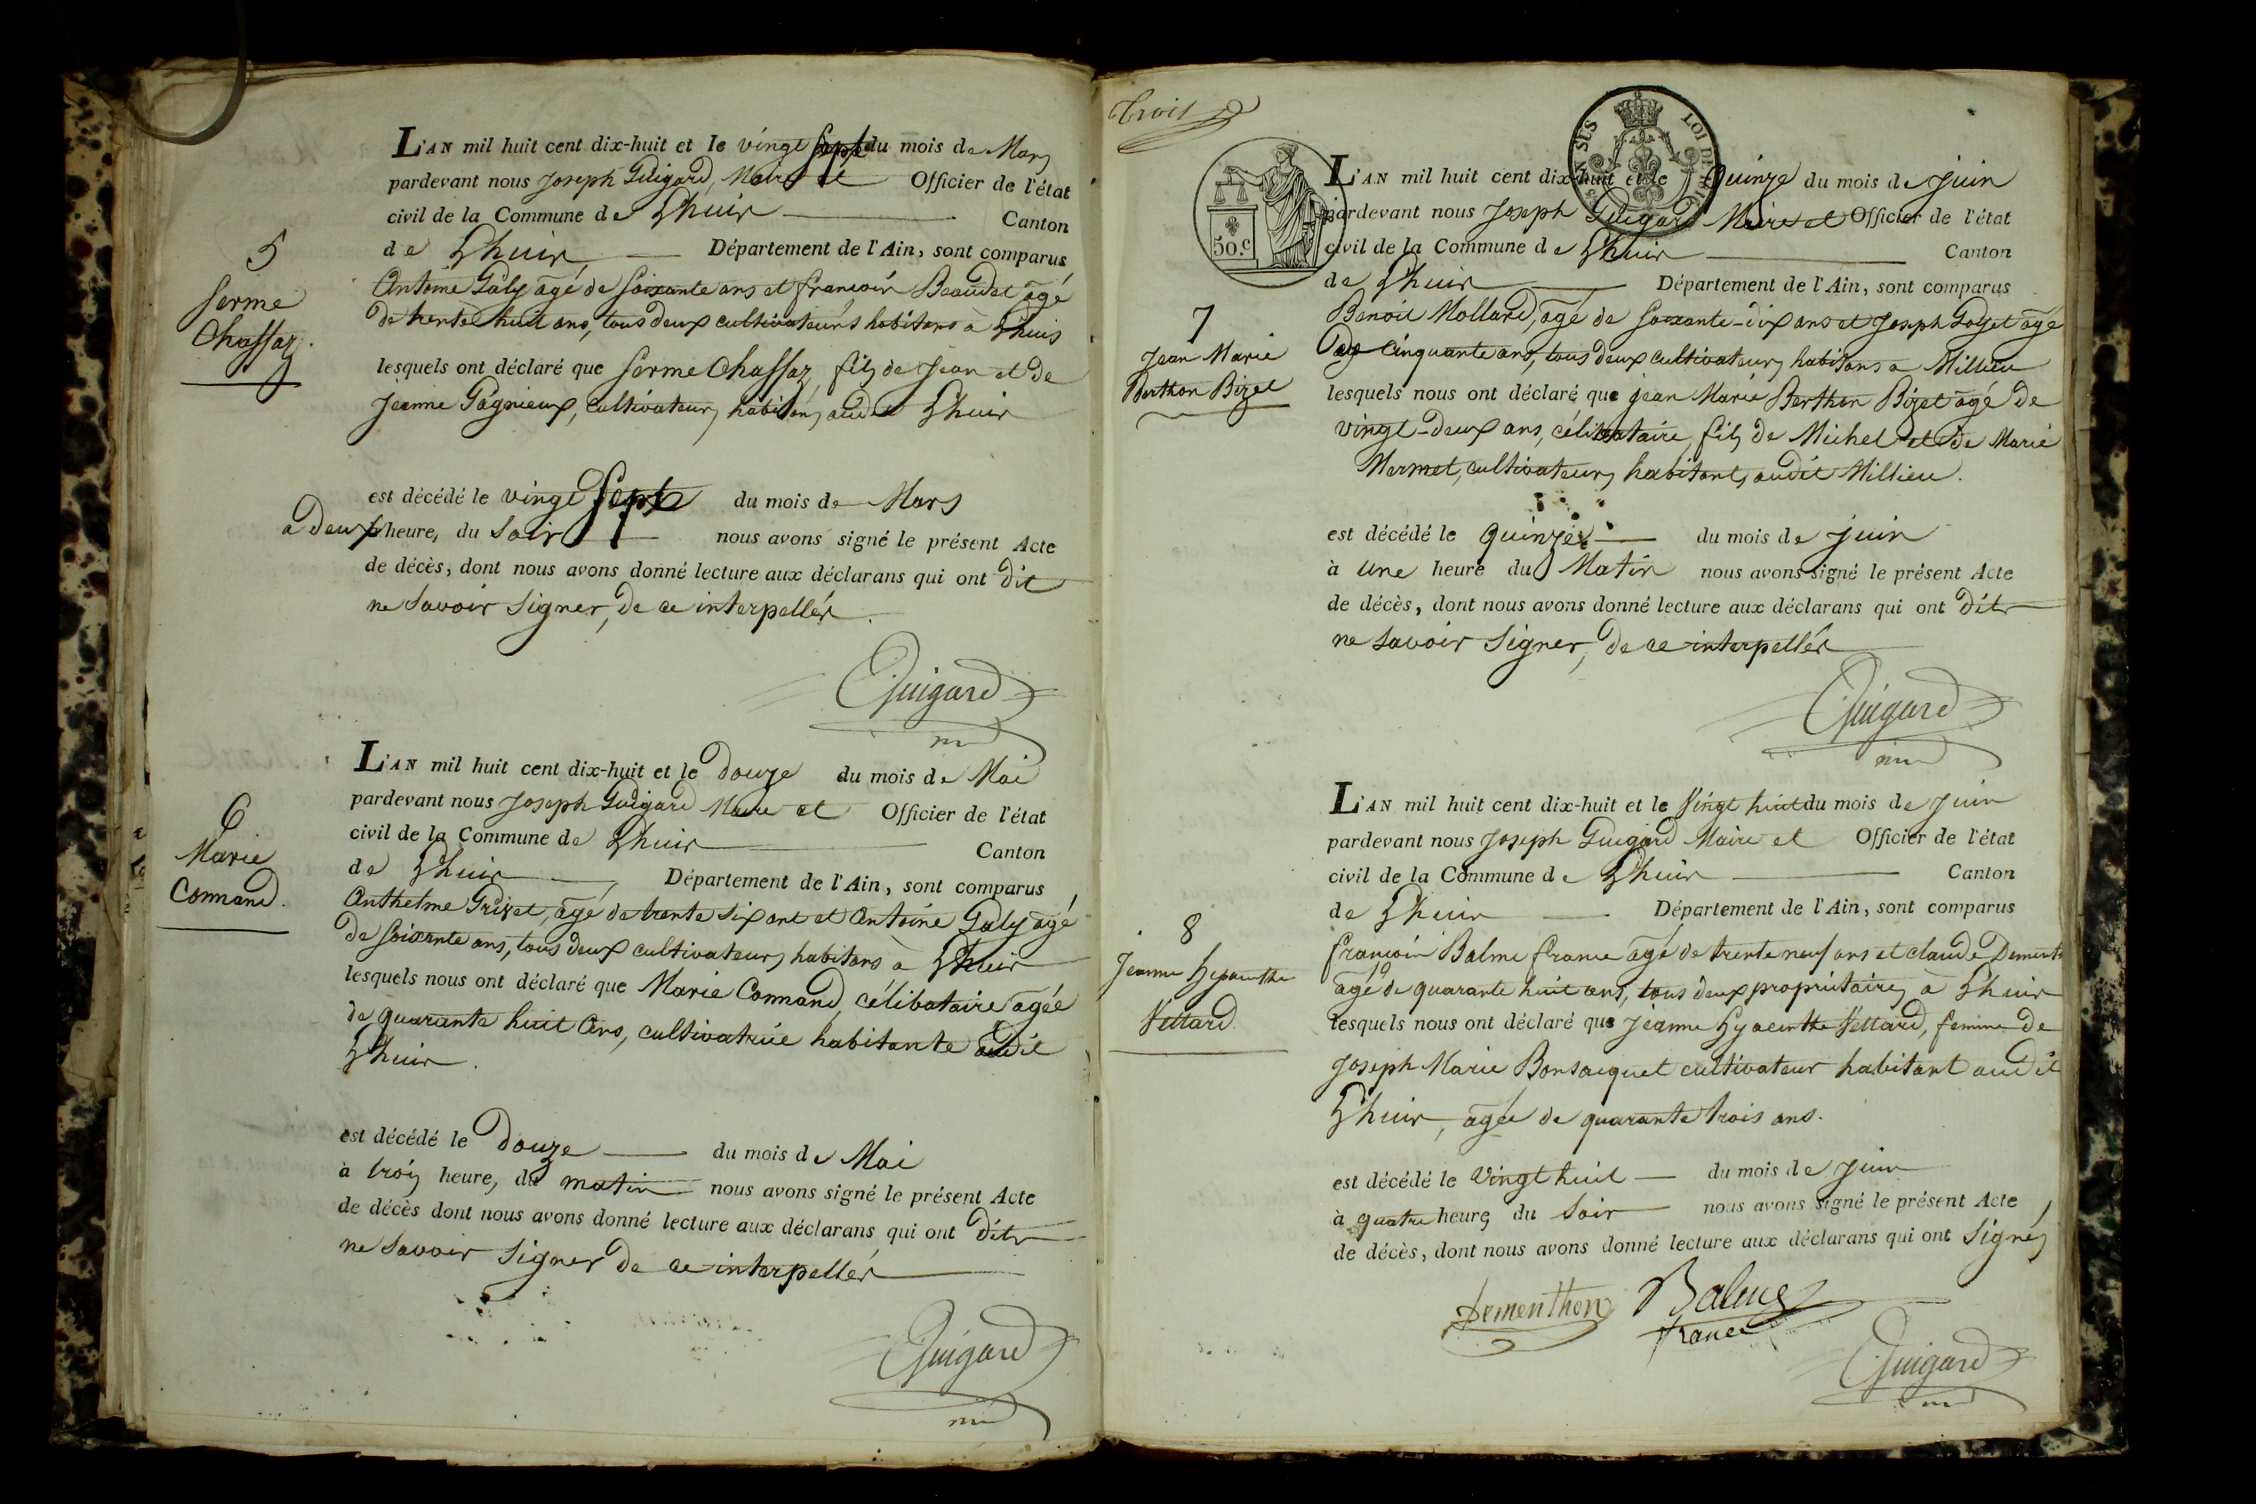 L'AN mil huit cent dix-huit et le vingt sept du mois de Mars
pardevant nous Joseph Guigard, Maire et Officier de l'état
civil de la Commune de Lhuis Canton
de Lhuis Département de l'Ain, sont comparus
5
Serme
Chassaz.
Antoine Galy agé de soixante ans et françois Beaudet agé
de trente huit ans, tous deux cultivateurs habitans à Lhuis
lesquels ont déclaré que Serme Chassaz, fils de Jean et de
Jeanne Gagnieux, cultivateurs habitans audit Lhuis
est décédé le vingt Sept du mois de Mars
a Deux heure, du Soir nous avons signé le présent Acte
de décès, dont nous avons donné lecture aux déclarans qui ont dit
ne Savoir Signer, de ce interpellés.
Guigard
L'AN mil huit cent dix-huit et le Douze du mois de Mai
pardevant nous Joseph Guigard Maire et Officier de l'état
civil de la Commune de Lhuis Canton
de Lhuis Département de l'Ain, sont comparus
6
Marie
Connand.
Anthelme Grizet, agé de trente six ans et Antoine Galy agé
de soixante ans, tous deux cultivateurs habitans à Lhuis
lesquels nous ont déclaré que Marie Connand, célibataire agée
de quarante huit Ans, cultivatrice habitante audit
Lhuis.
est décédé le Douze du mois de Mai
à trois heure, du matin nous avons signé le présent Acte
de décès dont nous avons donné lecture aux déclarans qui ont dits
ne Savoir Signer de ce interpellés
Guigard
Trois
50.c
LOI DE
L'AN mil huit cent dix-huit et le Quinze du mois de Juin
pardevant nous Joseph Guigard Maire et Officier de l'état
civil de la Commune de Lhuis Canton
de Lhuis Département de l'Ain, sont comparus
7
Jean Marie
Berthon Bizet
Benoit Mollard, agé de soixante-dix ans et Joseph Goyet agé
de cinquante ans, tous deux cultivateurs habitans a Millieu
lesquels nous ont déclaré que jean Marie Berthon Bizet agé de
vingt-deux ans, célibataire, fils de Michel et de Marie
Mermet, cultivateurs habitants audit Millieu.
est décédé le Quinze du mois de Juin
à une heure du Matin nous avons signé le présent Acte
de décès, dont nous avons donné lecture aux déclarans qui ont dits
ne Savoir Signer, de ce interpellés
Guigard
L'AN mil huit cent dix-huit et le Vingt huit du mois de Juin
pardevant nous Joseph Guigard Maire et Officier de l'état
civil de la Commune de Lhuis Canton
de Lhuis Département de l'Ain, sont comparus
8
Jeanne Hyacinthe
Vettard
françois Balme france agé de trente neuf ans et claude Dementh
agé de quarante huit ans, tous deux propriétaires à Lhuis
lesquels nous ont déclaré que Jeanne Hyacinthe Vettard, femme de
Joseph Marie Bonsacquet cultivateur habitant audit
Lhuis, agée de quarante trois ans.
est décédé le Vingt huit du mois de Juin
à quatre heures du Soir nous avons signé le présent Acte
de décès, dont nous avons donné lecture aux déclarans qui ont Signés
Dementhon Balme
france
Guigard